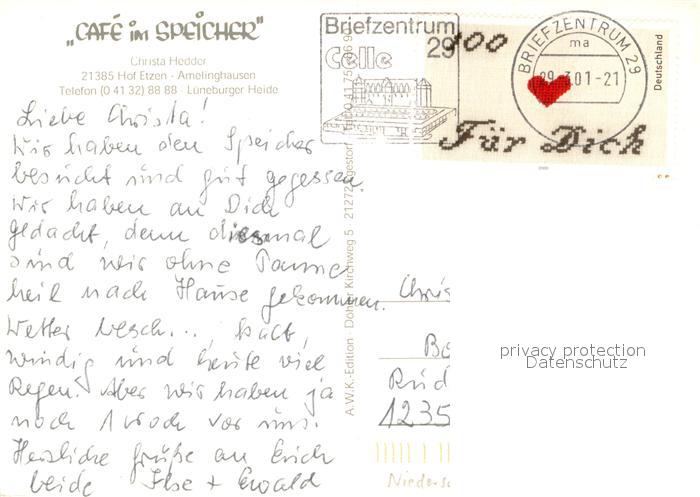 „CAFÉ im SPEICHER"
Christa Hedder
21385 Hof Etzen - Amelinghausen
Telefon (0 41 32) 88 88 · Lüneburger Heide
Liebe Christa!
Wir haben den Speicher
besucht und gut gegessen,
wir haben an Dich
gedacht, denn diesmal
sind wir ohne Panne
heil nach Hause gekommen.
Wetter besch..., kalt,
windig und heute viel
Regen. Aber wir haben ja
noch 1 Woch vor uns.
Herzliche Grüße an Euch
beide Ilse + Ewald
A.W.K.-Edition · Dohrer Kirchweg 5 · 21272
Briefzentrum
29
Celle
100
Für Dich
Deutschland
BRIEFZENTRUM 29
ma
29.3.01-21
Chris
Be
Rud
1235
Niedersc
privacy protection
Datenschutz